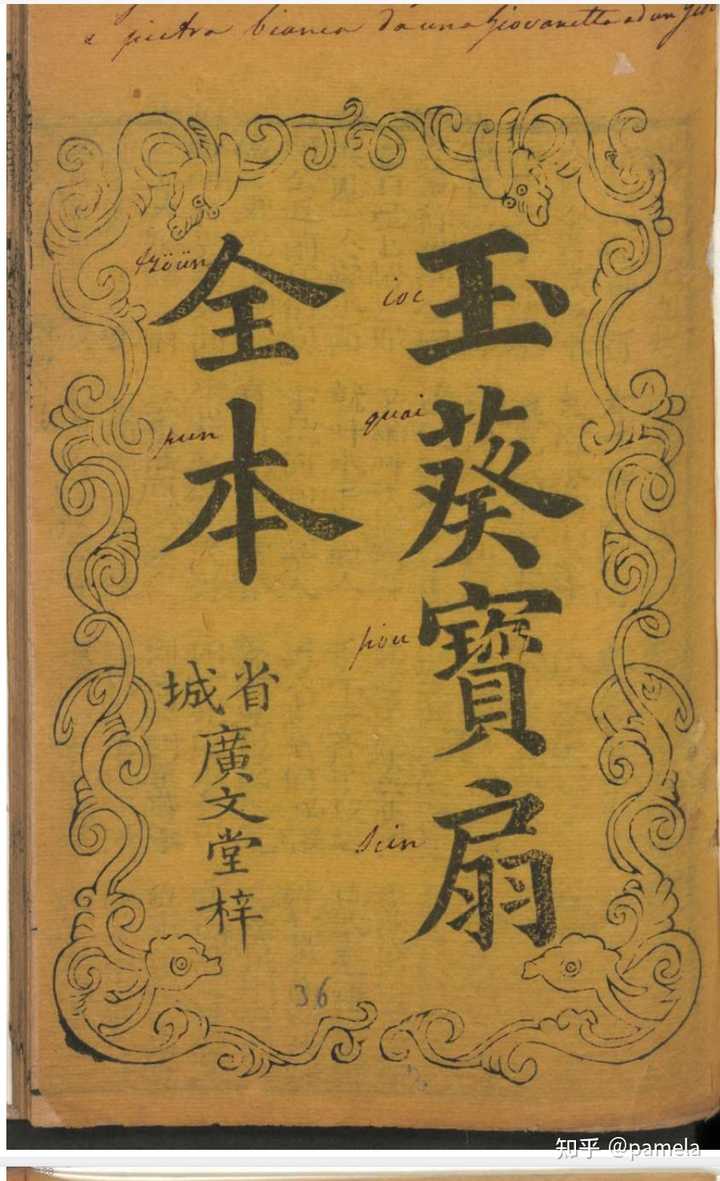 pietra bianca da una giovanetta ad un
玉葵寶扇
ioc
quai
pou
sin
全本
tzöün
pun
省城
廣文堂梓
36
知乎 @pamela